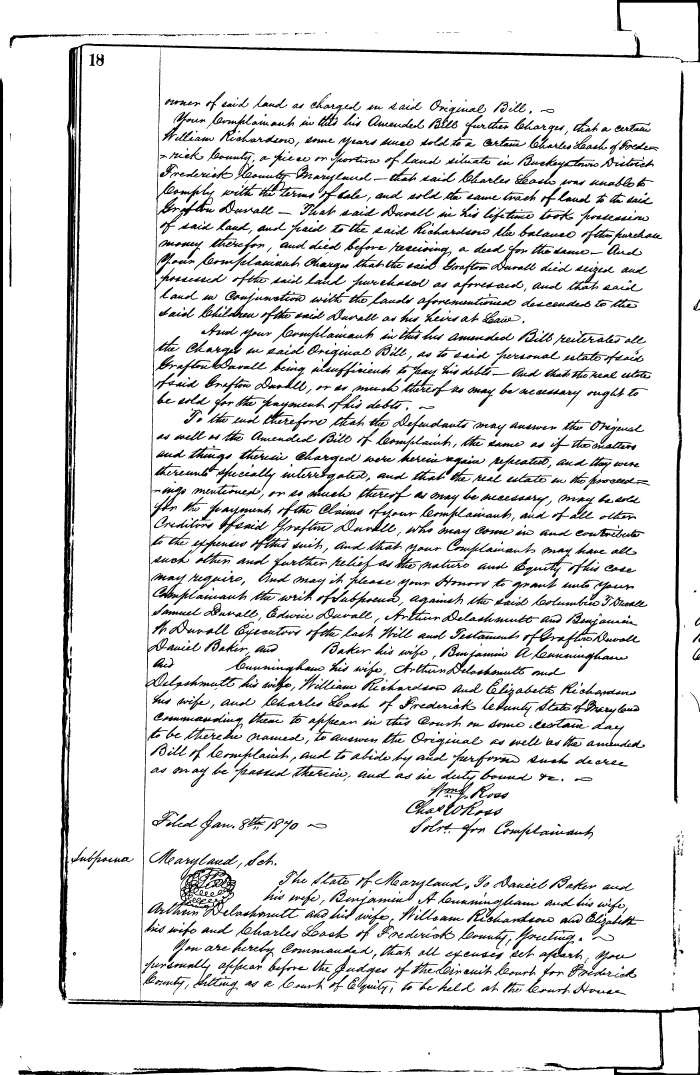 18
owner of said land as charged in said Original Bill. ~
Your Complainant in this his Amended Bill further Charges, that a certain
William Richardson, some years since sold to a certain Charles Cash of Freder-
-rick County, a piece or portion of land situate in Buckeystown District
Frederick County Maryland — that said Charles Cash was unable to
Comply with the terms of sale, and sold the same track of land to the said
Grafton Duvall — That said Duvall in his lifetime took possession
of said land, and paid to the said Richardson the balance of the purchase
money therefor, and died before receiving a deed for the same — And
Your Complainant Charges that the said Grafton Duvall died seized and
possessed of the said land purchased as aforesaid, and that said
land in Conjunction with the lands aforementioned descended to the
said Children of the said Duvall as his heirs at Law.
And your Complainant in this his amended Bill reiterates all
the Charges in said Original Bill, as to said personal estate of said
Grafton Duvall being insufficient to pay his debts — And that the real estate
of said Grafton Duvall, or as much thereof as may be necessary ought to
be sold for the payment of his debts. ~
To the end therefore that the Defendants may answer the Original
as well as the Amended Bill of Complaint, the same as if the matters
and things therein charged were herein again repeated, and they were
thereunto specially interrogated, and that the real estate in the proceed-
-ings mentioned, or so much thereof as may be necessary, may be sold
for the payment of the Claims of your Complainant, and of all other
Creditors of said Grafton Duvall, who may come in and contribute
to the expenses of this suit, and that your Complainant may have all
such other and further relief as the nature and Equity of his case
may require, And may it please your Honors to grant unto your
Complainant the writ of Subpoena, against the said Columbia T Duvall
Samuel Duvall, Edwin Duvall, Arthur Delashmutt and Benjamin
Duvall Executors of the last Will and Testament of Grafton Duvall
Daniel Baker, and Baker his wife, Benjamin A Cunningham
and Cunningham his wife, Arthur Delashmutt and
Delashmutt his wife, William Richardson and Elizabeth Richardson
his wife, and Charles Cash of Frederick County State of Maryland
commanding them to appear in this Court on some certain day
to be therein named, to answer the Original as well as the amended
Bill of Complaint, and to abide by and perform such decree
as may be passed therein, and as in duty bound &c. ~
Wm J. Ross
Chas W Ross
Filed Jan. 8th 1870 ~ Solrs for Complainant
Subpoena Maryland, Sct.
The State of Maryland, To Daniel Baker and
his wife, Benjamin A Cunningham and his wife,
Arthur Delashmutt and his wife, William Richardson and Elizabeth
his wife and Charles Cash of Frederick County, Greeting. ~
You are hereby commanded, that all excuses set apart, you
personally appear before the Judges of the Circuit Court for Frederick
County, sitting as a Court of Equity, to be held at the Court House